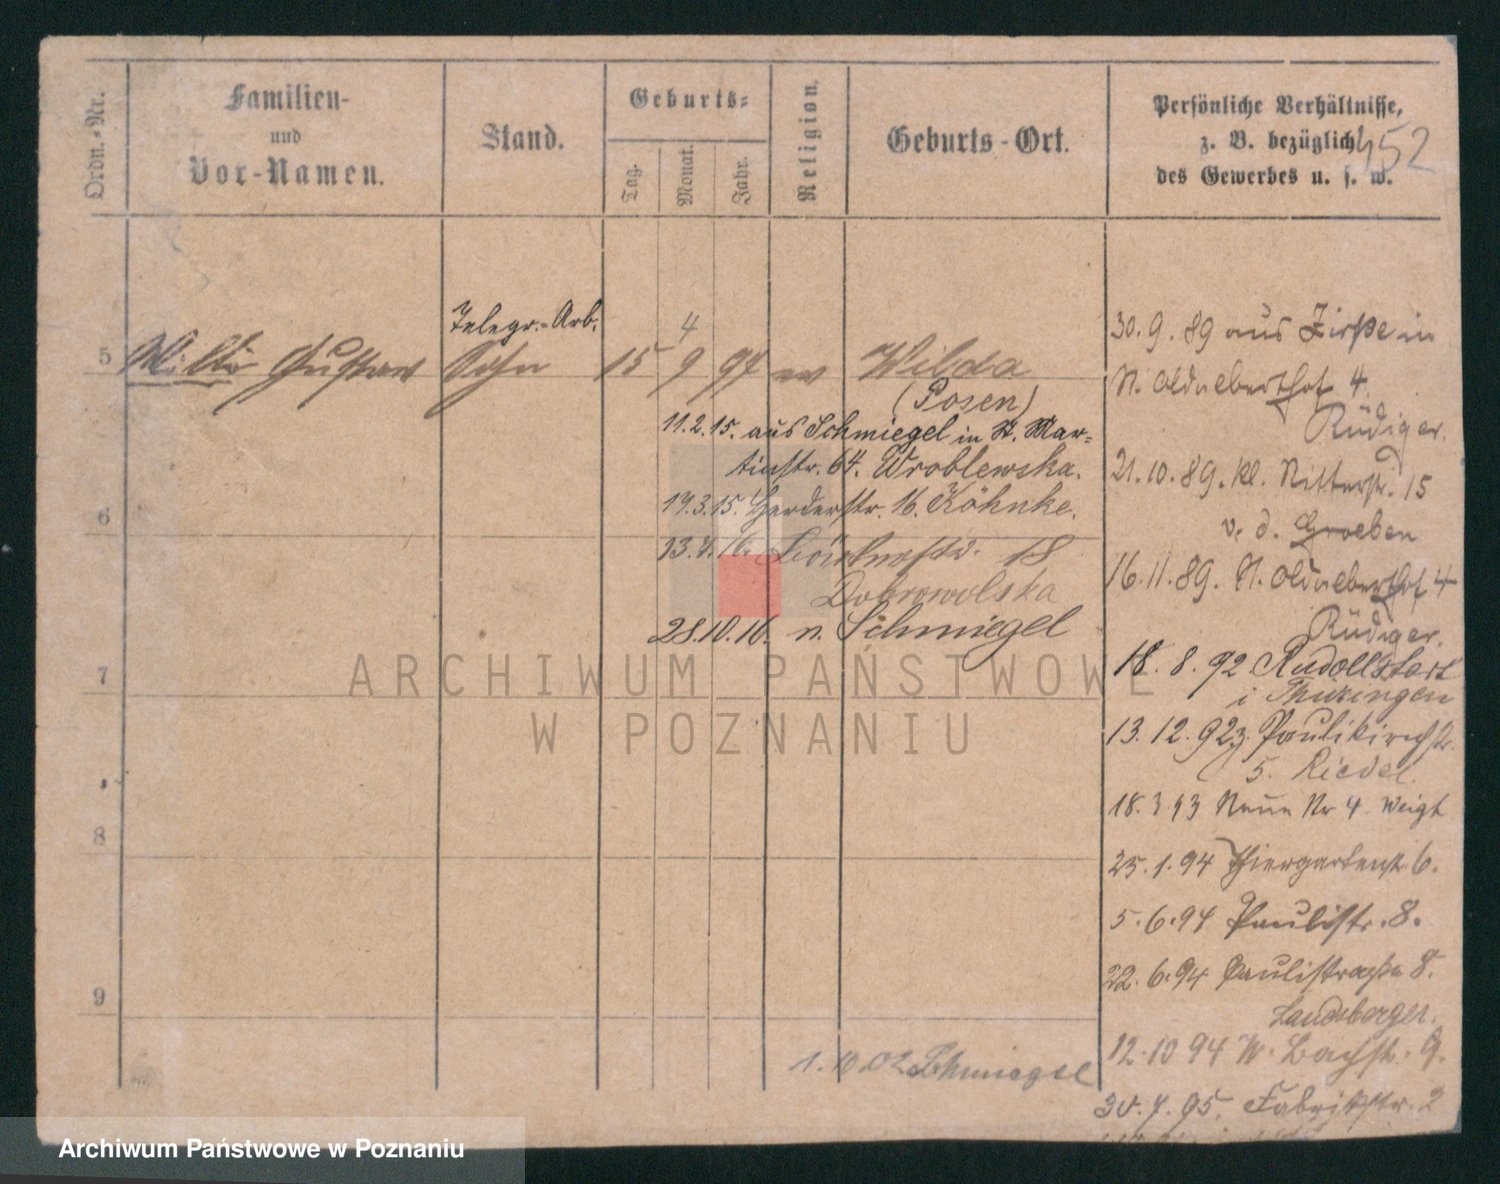 Ordn.-Nr.
Familien-
und
Vor-Namen.
Stand.
Geburts-
Tag.
Monat.
Jahr.
Religion.
Geburts-Ort.
Persönliche Verhältnisse,
z. B. bezüglich
des Gewerbes u. s. w.
452
Telegr.-Arb.
4
5 Gustav Sohn 15 9 94 ev Wilda
(Posen)
11.2.15. aus Schmiegel in St. Mar-
tinstr. 64. Wroblewska.
19.3.15. Herderstr. 16. Köhnke.
13.4.16. 18
Dobrowolska
28.10.16. n. Schmiegel
6
7
8
9
1.10.02 Schmiegel
30.9.89 aus Zirke in
4.
Rüdiger.
21.10.89. Kl. Ritterstr. 15
v. d. Groeben
16.11.89. 4
Rüdiger.
18.8.92 Rudollstart
i Thuringen
13.12.92 Paulikirchstr.
5. Riedel.
18.3.93 Neue 4 Weigt
25.1.94 Thiergartenstr. 6.
5.6.94 Paulistr. 8.
22.6.94 Paulistraße 8.
Landsberger.
12.10 94 W. Bachstr. 9.
30.4.95. Fabrikstr. 2
ARCHIWUM PAŃSTWOWE
W POZNANIU
Archiwum Państwowe w Poznaniu